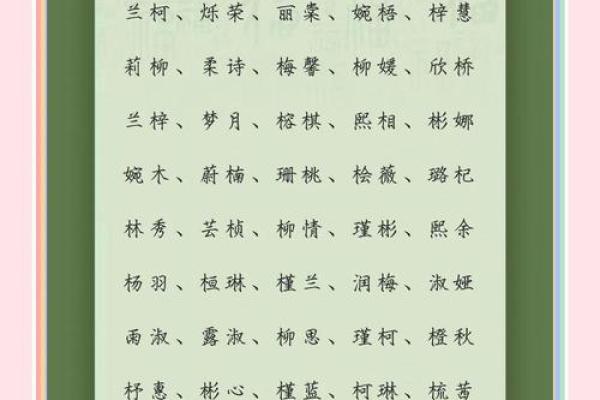 兰柯、烁荣、丽棠、婉梧、梓慧
莉柳、柔诗、梅馨、柳媛、欣桥
兰梓、梦月、榕棋、熙相、彬娜
婉木、蔚楠、珊桃、桧薇、璐杞
林秀、芸桢、柳情、瑾彬、熙余
杨羽、桓琳、槿兰、润梅、淑娅
雨淑、露淑、柳思、瑾柯、橙秋
杼惠、彬心、槿蓝、柯琳、梳茜